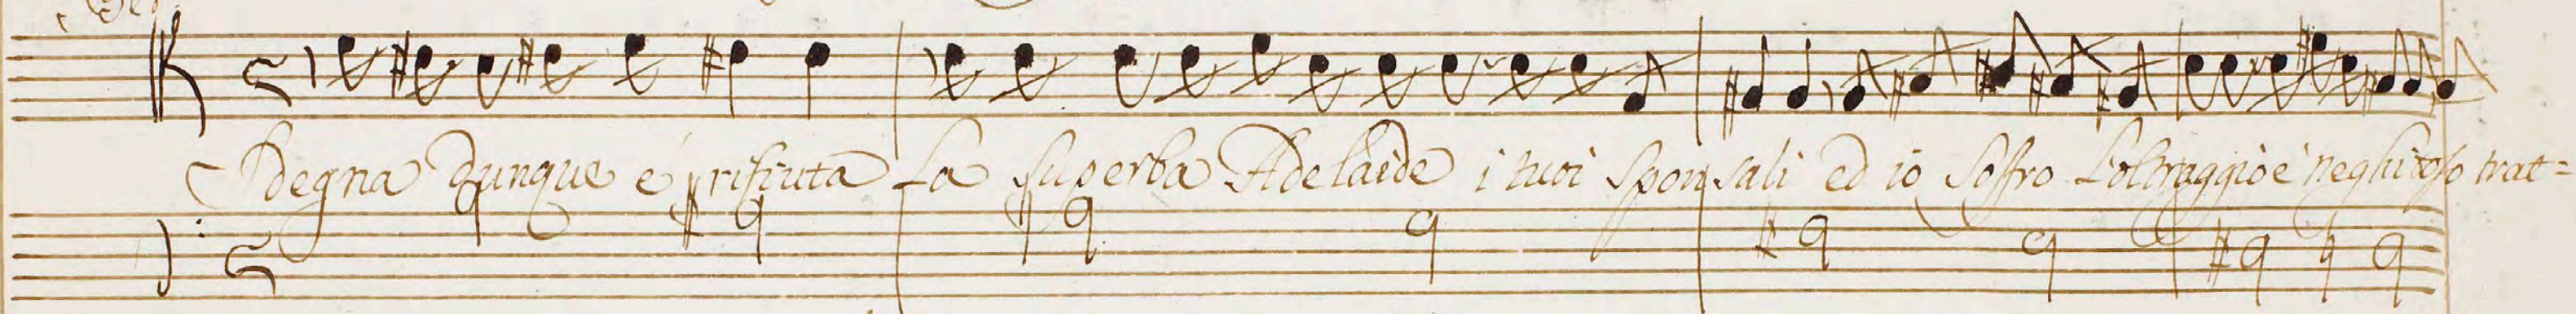 Sdegna dunque e rifiuta La superba Adelaide i tuoi sponsali ed io soffro L'oltraggio e neghitoso trat=